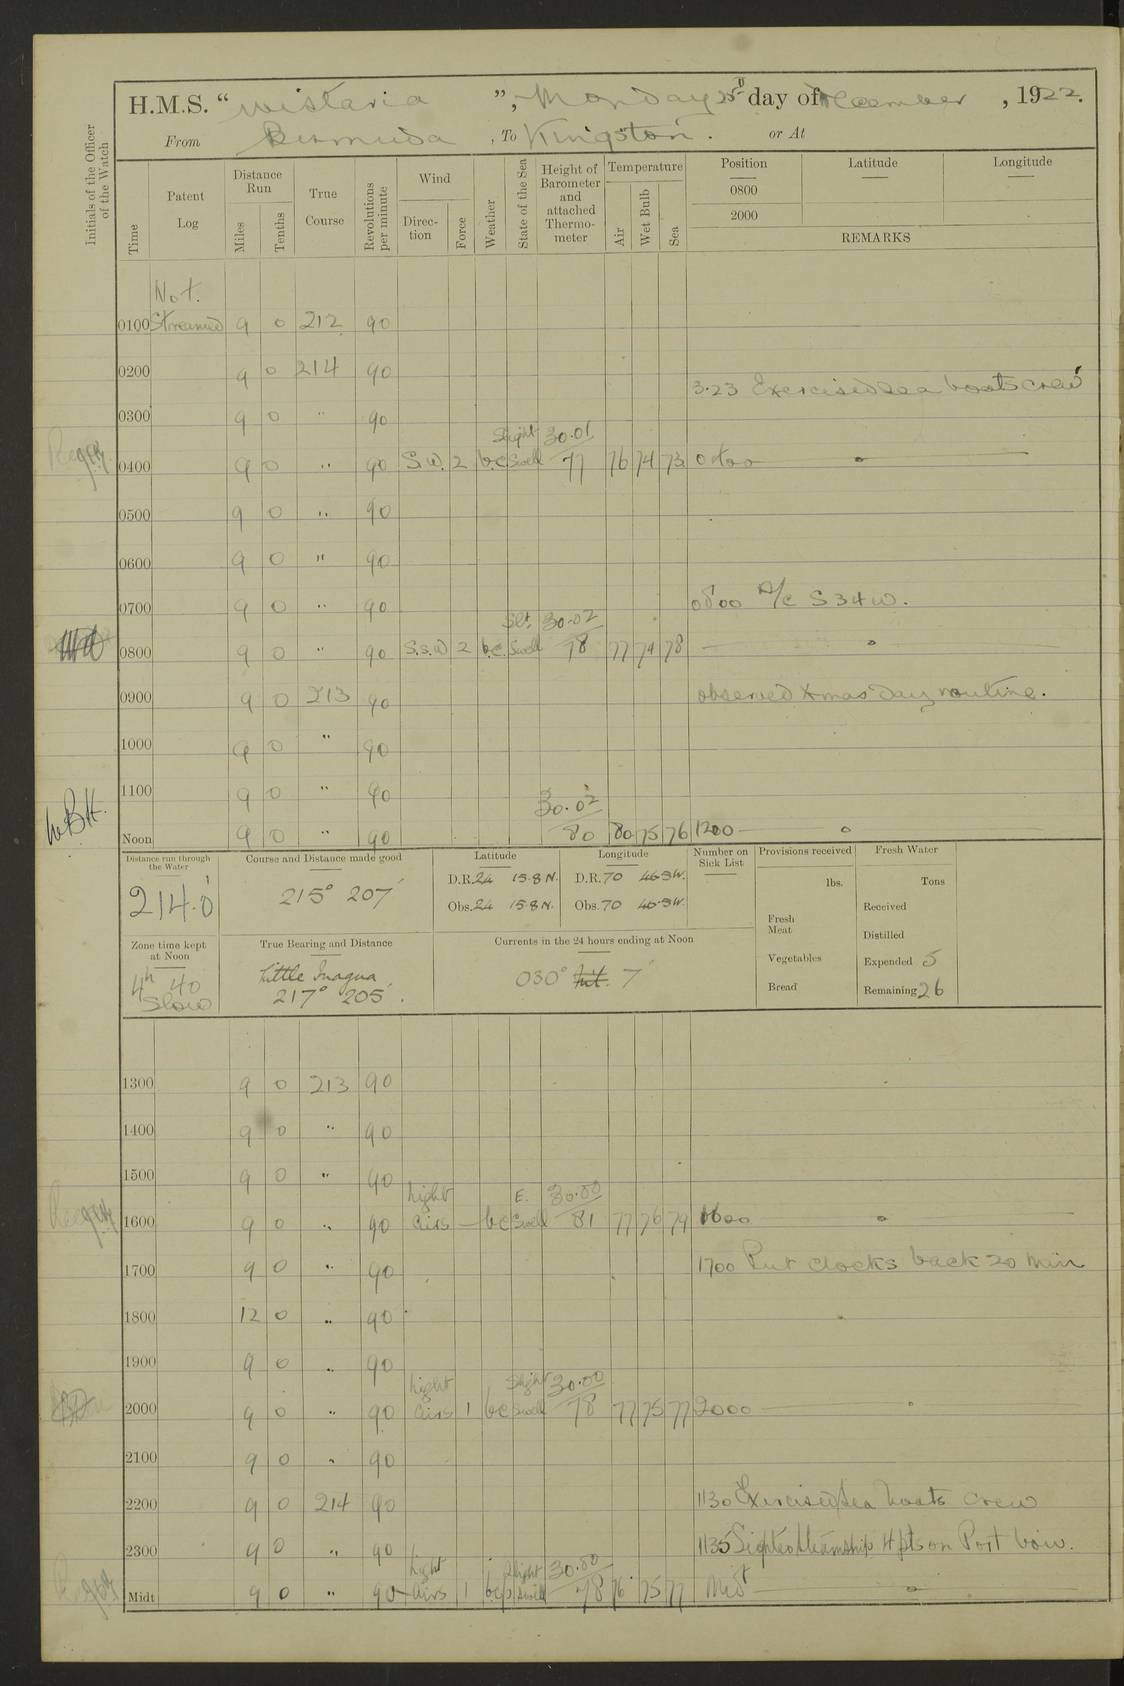 H.M.S. "Wistaria", Monday 25th day of December, 1922.
From Bermuda, To Kingston. or At
Initials of the Officer of the Watch
Time
Patent Log
Distance Run
Miles
Tenths
True Course
Revolutions per minute
Wind
Direction
Force
Weather
State of the Sea
Height of Barometer and attached Thermometer
Temperature
Air
Wet Bulb
Sea
Position Latitude Longitude
0800
2000
REMARKS
Not.
0100 Streamed 9 0 212 90
0200 9 0 214 90
3.23 Exercised sea boats crew
0300 9 0 " 90
Slight 30.01
0400 9 0 " 90 S.W. 2 b.c. Swell 77 76 74 73 0400
0500 9 0 " 90
0600 9 0 " 90
0700 9 0 " 90 0800 A/c S 34 W.
Slt. 30.02
0800 9 0 " 90 S.S.W 2 b.c. Swell 78 77 74 78
0900 9 0 213 90 observed Xmas Day routine.
1000 9 0 " 90
1100 9 0 " 90
W.B.H. 30.02
Noon 9 0 " 90 80 80 75 76 1200
Distance run through the Water
214.0
Course and Distance made good
215° 207'
Latitude
D.R. 24 15.8 N.
Obs. 24 15.8 N.
Longitude
D.R. 70 46.3 W.
Obs. 70 46.3 W.
Number on Sick List
Provisions received
lbs.
Fresh Meat
Vegetables
Bread
Fresh Water
Tons
Received
Distilled
Expended 5
Remaining 26
Zone time kept at Noon
4h 40
Slow
True Bearing and Distance
Little Inagua
217° 205'.
Currents in the 24 hours ending at Noon
030° 7'
1300 9 0 213 90
1400 9 0 " 90
1500 9 0 " 90
Light E. 30.00
1600 9 0 " 90 airs — bc Swell 81 77 76 79 1600
1700 9 0 " 90 1700 Put clocks back 20 min
1800 12 0 " 90
1900 9 0 " 90
Light Slight 30.00
2000 9 0 " 90 airs 1 bc Swell 78 77 75 77 2000
2100 9 0 " 90
2200 9 0 214 90 1130 Exercised sea boats crew
2300 9 0 " 90 1135 Sighted steamship 4 pts on Port bow.
Light Slight 30.00
Midt 9 0 " 90 airs 1 bcp Swell 78 76 75 77 Midt